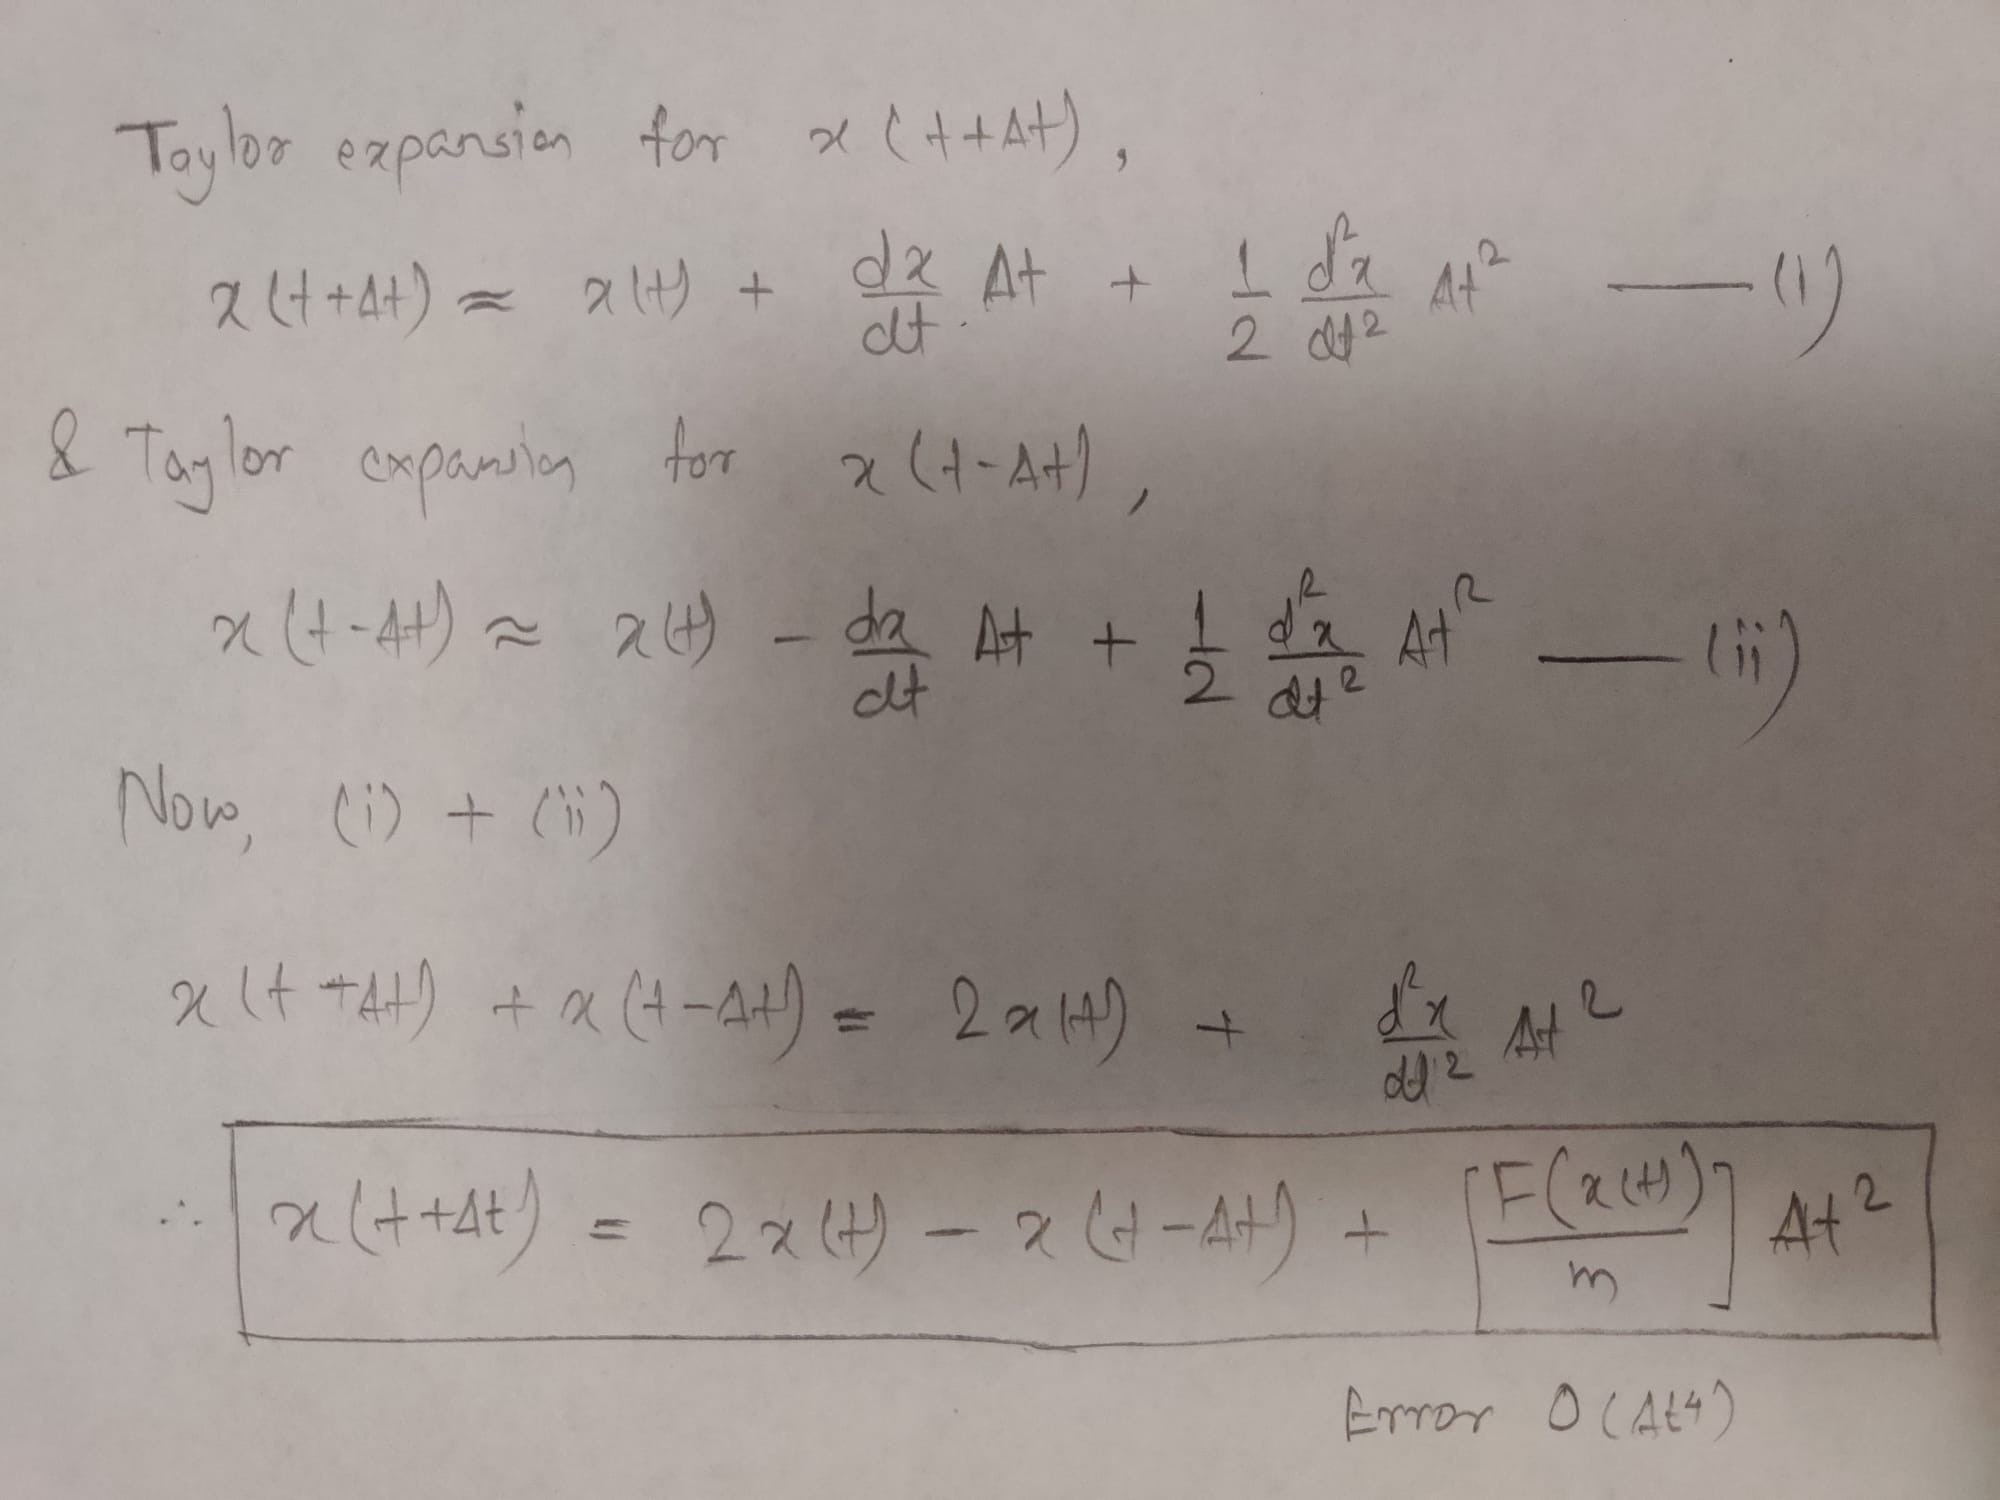 Taylor expansion for x(t+Δt),
x(t+Δt) ≈ x(t) + dx/dt Δt + 1/2 d²x/dt² Δt² — (i)
& Taylor expansion for x(t-Δt),
x(t-Δt) ≈ x(t) - dx/dt Δt + 1/2 d²x/dt² Δt² — (ii)
Now, (i) + (ii)
x(t+Δt) + x(t-Δt) = 2x(t) + d²x/dt² Δt²
∴ x(t+Δt) = 2x(t) - x(t-Δt) + [F(x(t))/m] Δt²
Error O(Δt4)